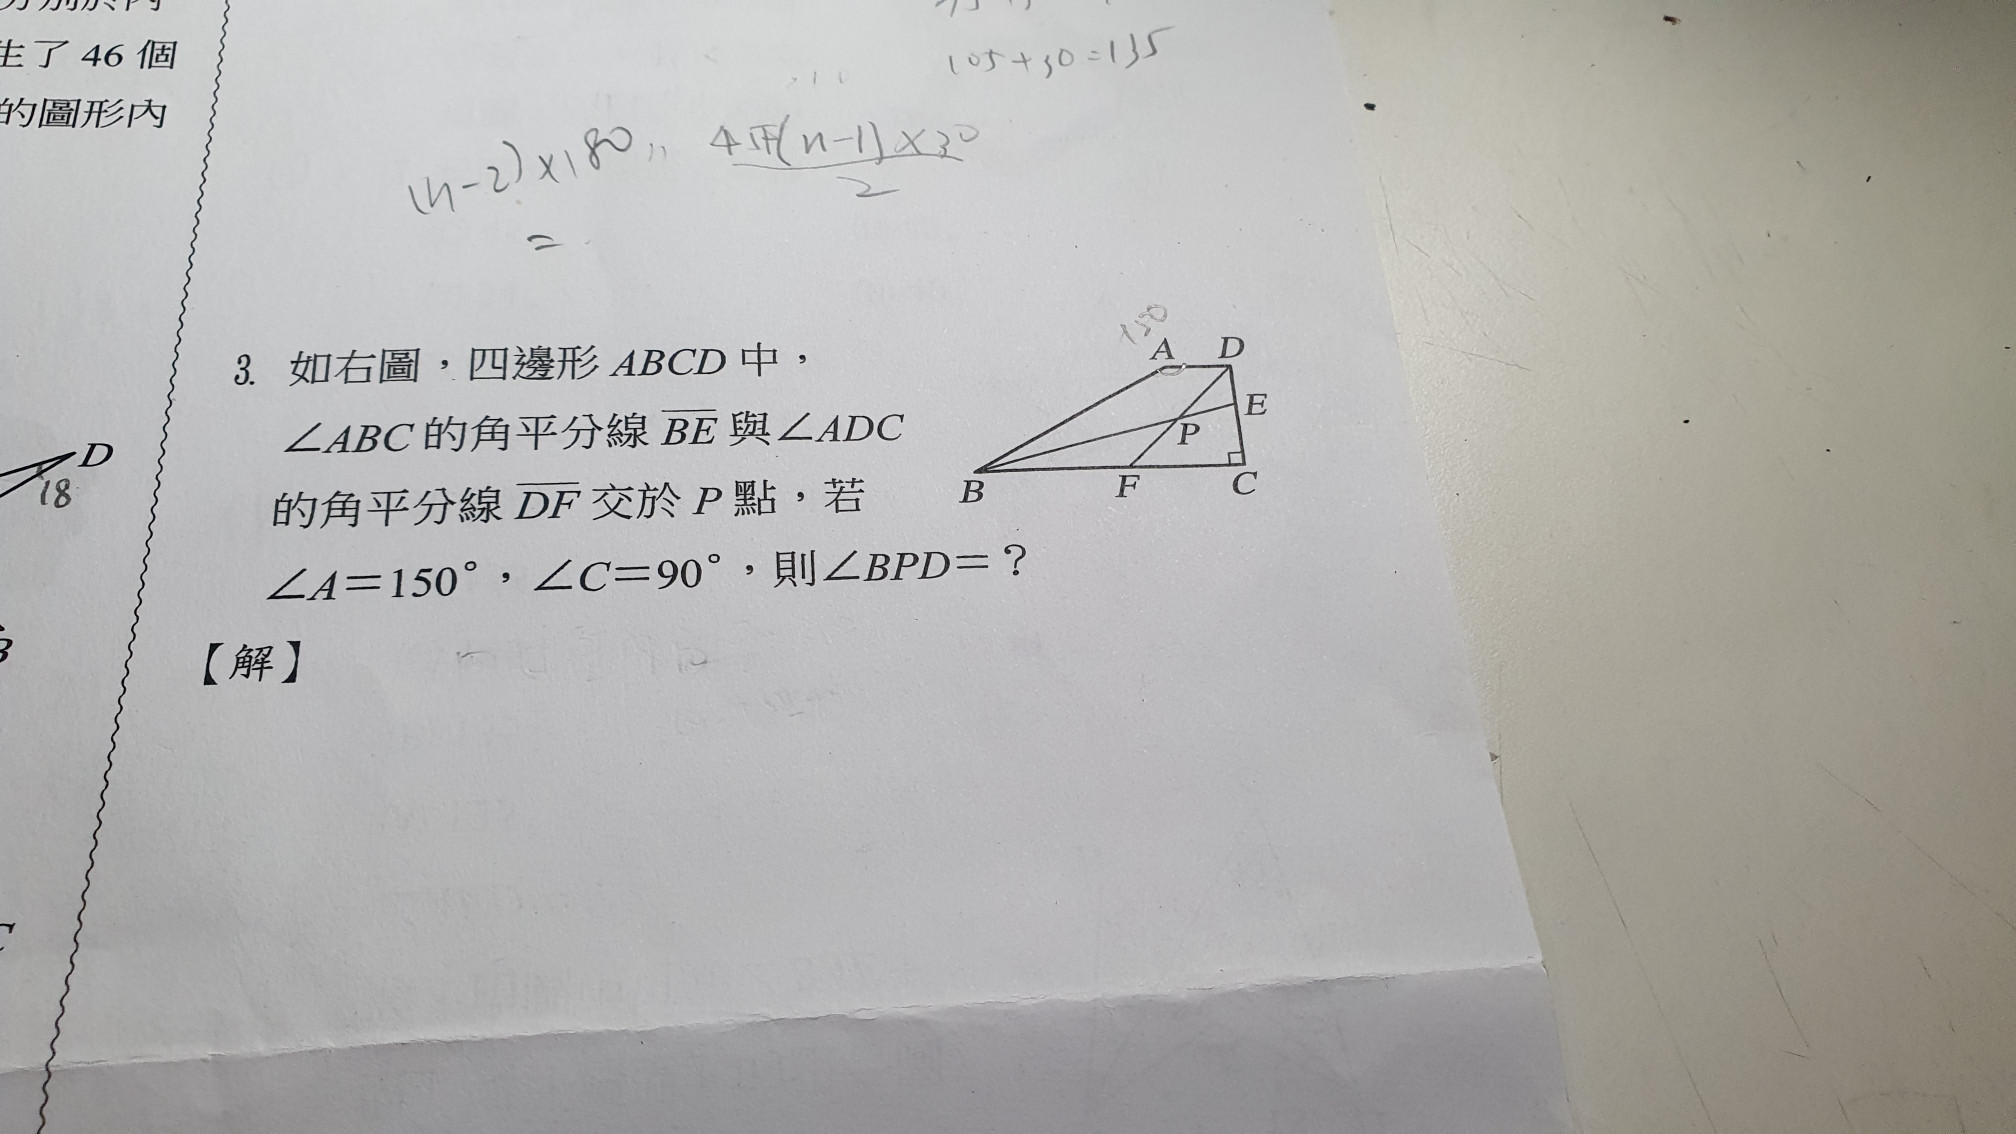 生了 46 個
的圖形內
105+30=135
(n-2)×180
4π(n-1)×30
2
=
D
18
3. 如右圖，四邊形 ABCD 中，
∠ABC 的角平分線 BE 與∠ADC
的角平分線 DF 交於 P 點，若
∠A＝150°，∠C＝90°，則∠BPD＝？
150
A D
E
P
B F C
【解】